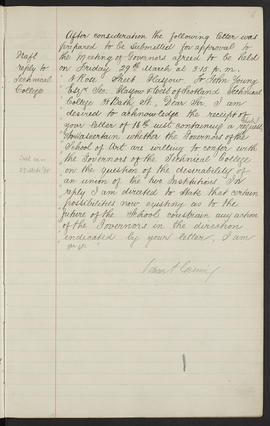 After consideration the following letter was
prepared to be submitted for approval to
the Meeting of Governors agreed to be held
on Friday 29th March at 3.15 p.m.
Draft
reply to
Technical
College
4 Rose Street Glasgow To John Young
Esqre Sec. Glasgow & West of Scotland Technical
College 38 Bath St. Dear Sir. I am
desired to acknowledge the receipt of
your letter of 16th inst containing a request
to ascertain whether the Governors of the
School of Art are willing to confer with
the Governors of the Technical College
on the question of the desirability of
an union of the two Institutions. In
reply I am directed to state that certain
possibilities now existing as to the
future of the Schools constrain any action
of the Governors in the direction
indicated by your letter, I am